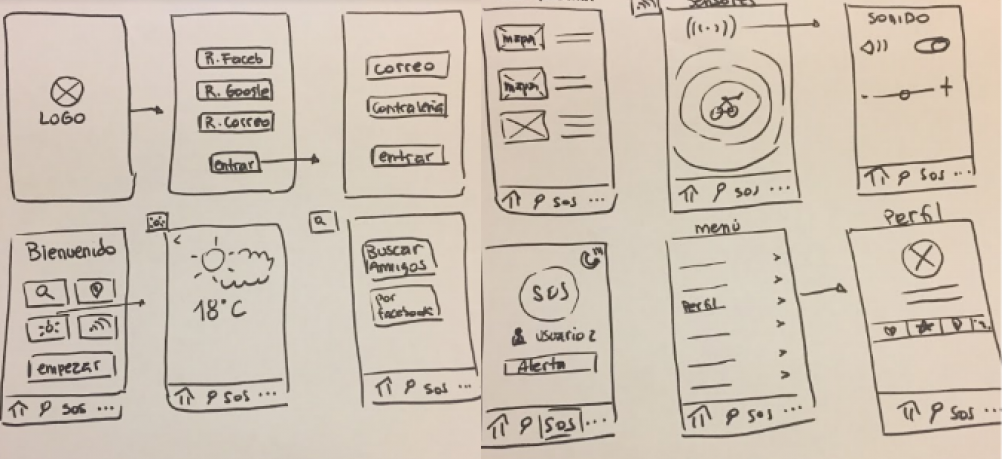 LOGO
R. Faceb
R. Google
R. Correo
entrar
Correo
Contraleña
entrar
mapa
mapa
SOS ...
Sensores
((··))
SOS ...
SONIDO
- +
SOS ...
Bienvenido
empezar
SOS ...
<
18°C
SOS ...
Buscar
Amigos
por
facebook
SOS ...
SOS
usuario 2
Alerta
SOS ...
menú
>
>
Perfil >
>
>
>
SOS ...
Perfil
SOS ...